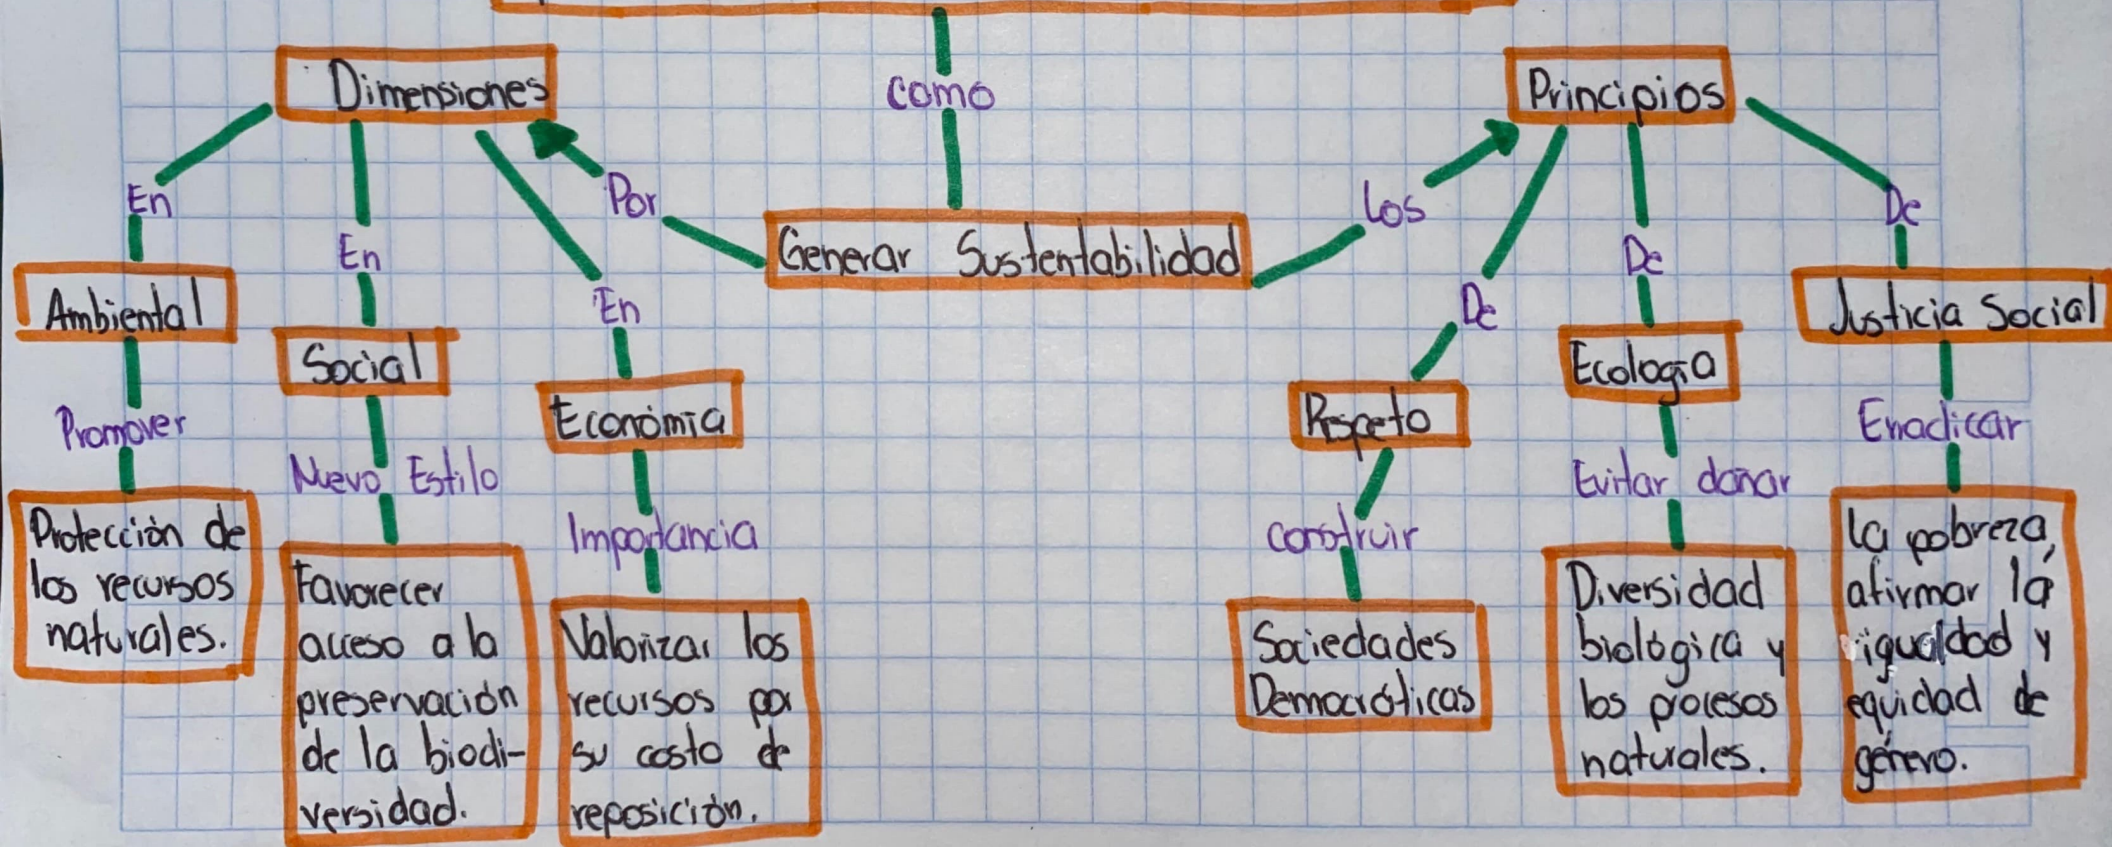 Dimensiones
como
Principios
En
En
En
Por
Generar Sustentabilidad
Los
De
De
De
Ambiental
Promover
Protección de
los recursos
naturales.
Social
Nuevo Estilo
Favorecer
acceso a la
preservación
de la biodi-
versidad.
Económia
Importancia
Valorizar los
recursos por
su costo de
reposición.
Respeto
construir
Sociedades
Democráticas
Ecología
Evitar danar
Diversidad
biológica y
los procesos
naturales.
Justicia Social
Erradicar
la pobreza,
afirmar la
igualdad y
equidad de
género.